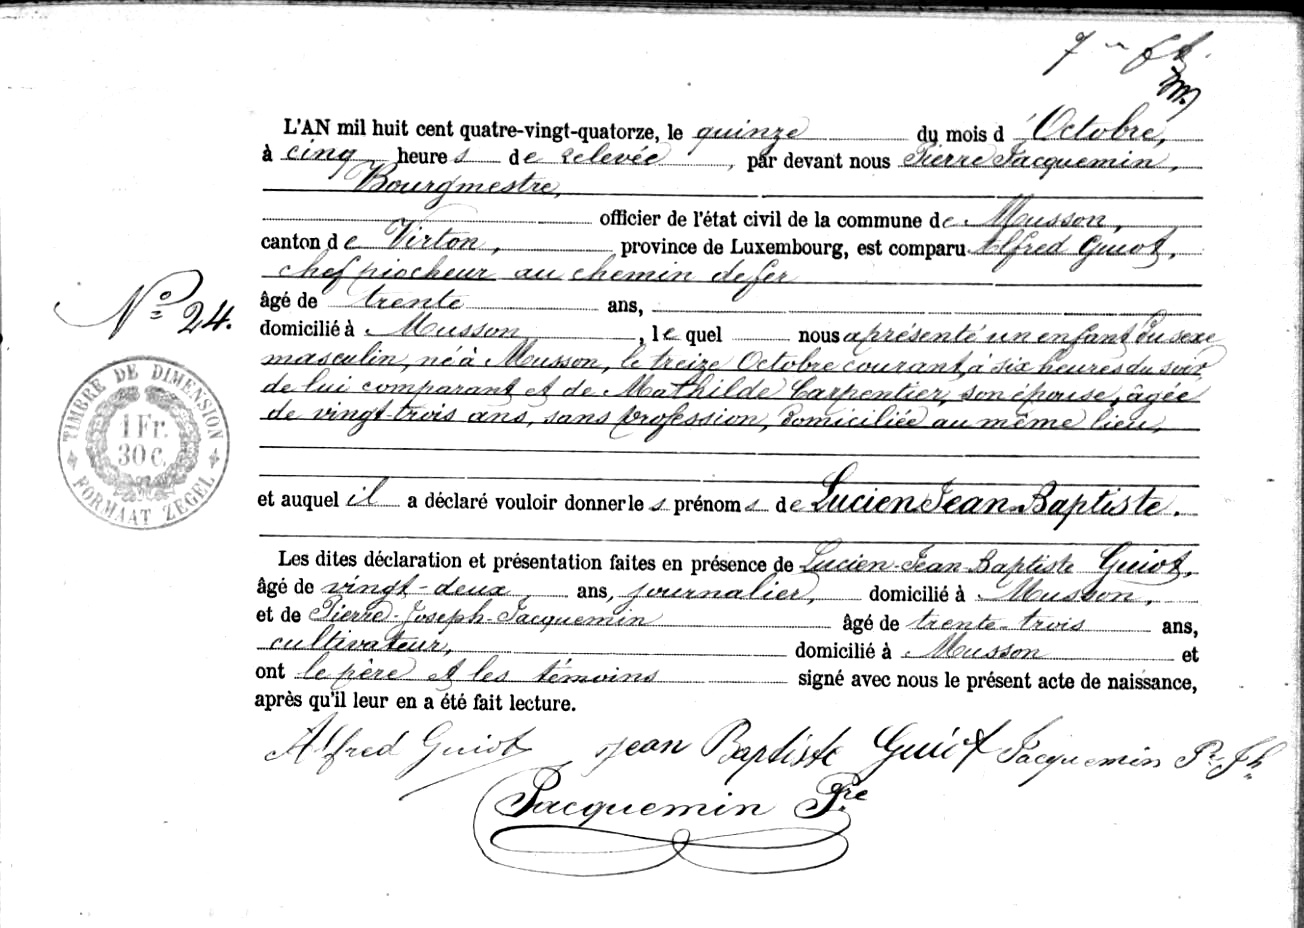 L'AN mil huit cent quatre-vingt-quatorze, le quinze du mois d'Octobre,
à cinq heures de relevée, par devant nous Pierre Jacquemin,
Bourgmestre,
officier de l'état civil de la commune de Musson,
canton de Virton, province de Luxembourg, est comparu Alfred Guiot,
chef piocheur au chemin de fer
âgé de trente ans,
No 24.
domicilié à Musson, lequel nous a présenté un enfant du sexe
masculin, né à Musson, le treize Octobre courant, à six heures du soir
de lui comparant et de Mathilde Carpentier, son épouse, âgée
de vingt-trois ans, sans profession, domiciliée au même lieu,
TIMBRE DE DIMENSION
1 Fr.
30 C.
FORMAAT ZEGEL
et auquel il a déclaré vouloir donner les prénoms de Lucien Jean Baptiste.
Les dites déclaration et présentation faites en présence de Lucien-Jean-Baptiste Guiot,
âgé de vingt-deux ans, journalier, domicilié à Musson,
et de Pierre-Joseph-Jacquemin âgé de trente-trois ans,
cultivateur, domicilié à Musson et
ont le père et les témoins signé avec nous le présent acte de naissance,
après qu'il leur en a été fait lecture.
Alfred Guiot Jean Baptiste Guiot Jacquemin Pre Jh
Jacquemin Pre